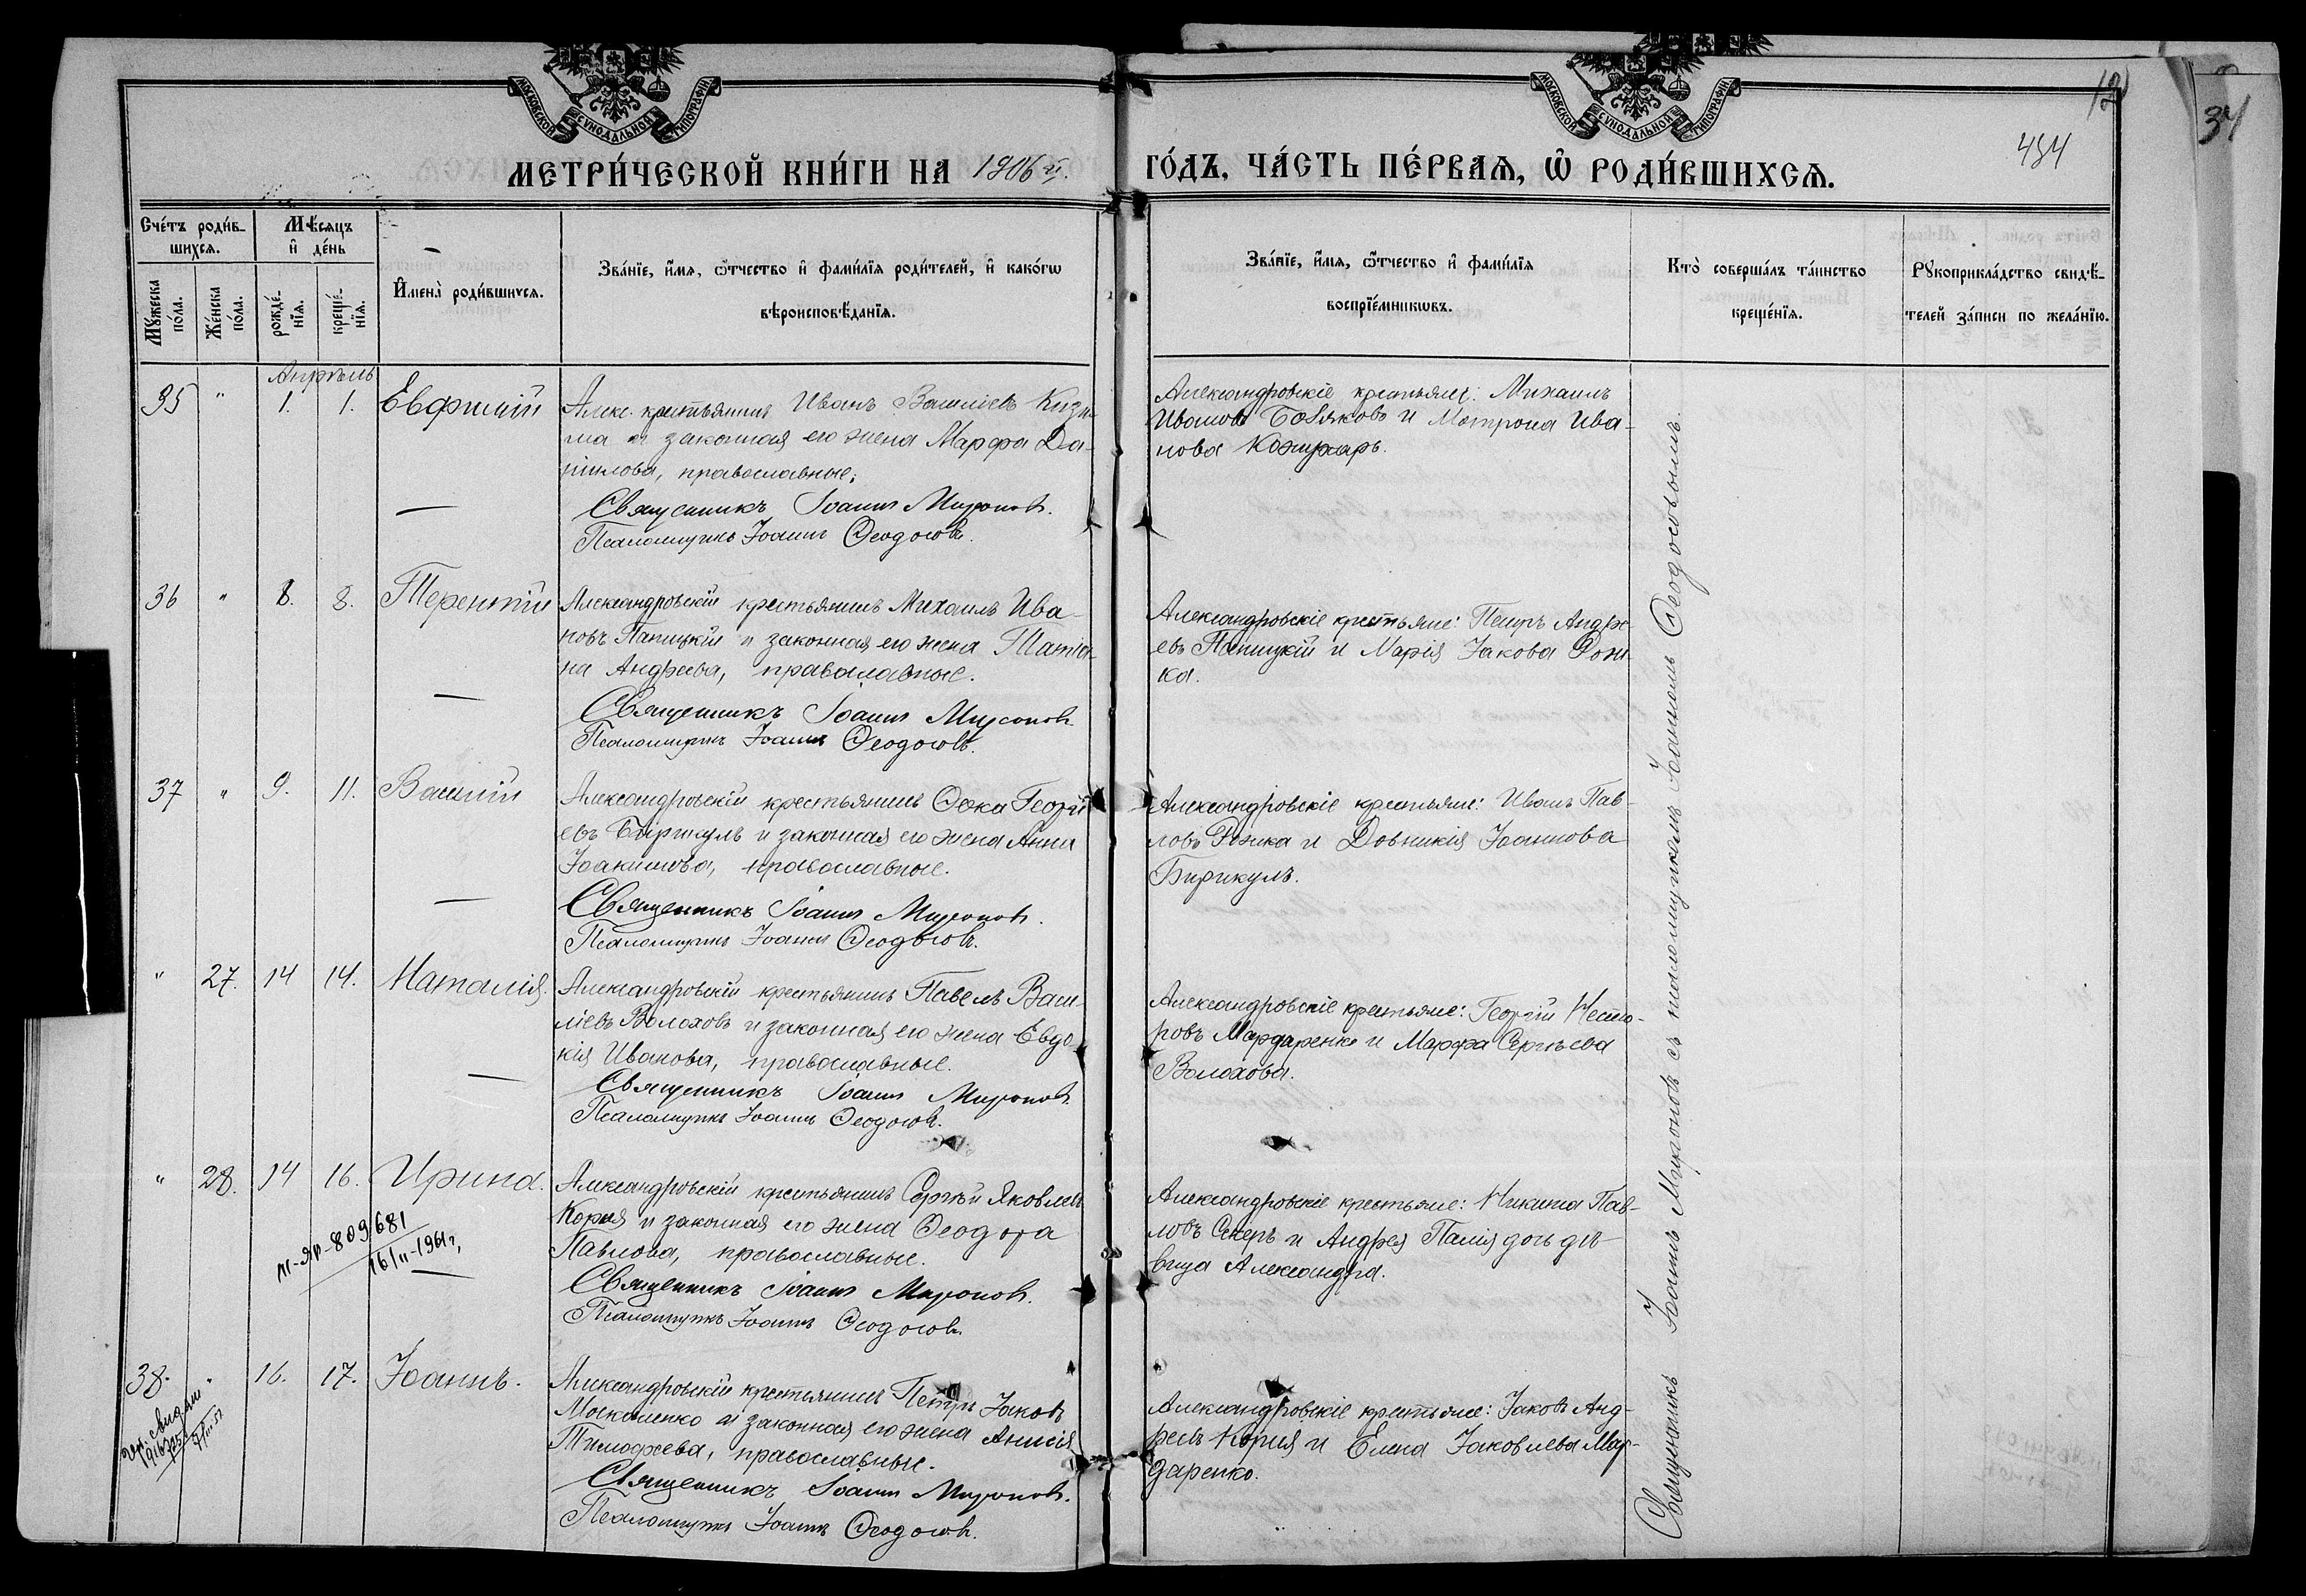 МОСКОВСКОЙ СѴНОДАЛЬНОЙ ТИПОГРАФІИ
МОСКОВСКОЙ СѴНОДАЛЬНОЙ ТИПОГРАФІИ
34
484
МЕТРИ́ЧЕСКОЙ КНИ́ГИ НА 1906 й.
ГО́ДЪ, ЧА́СТЬ ПЕ́РВАѦ, Ѡ҆ РОДИ́ВШИХСѦ.
Сче́тъ роди́в-
шихсѧ.
Мꙋ́жеска по́ла.
Же́нска по́ла.
Мѣ́сѧцъ
и҆ де́нь
рожде́-
нїѧ.
креще́-
нїѧ.
И҆мена̀ роди́вшихсѧ.
Зва́нїе, и҆́мѧ, ѻ҆́тчество и҆ фами́лїѧ роди́телей, и҆ како́гѡ
вѣроисповѣ́данїѧ.
Зва́нїе, и҆́мѧ, ѻ҆́тчество и҆ фами́лїѧ
воспрїе́мникѡвъ.
Кто̀ соверша́лъ та́инство
креще́нїѧ.
Рꙋкоприкла́дство свидѣ́-
телей за́писи по жела́нїю.
Апрѣль
35 " 1. 1. Евфимій
Алекс. крестьянинъ Иванъ Василіевъ Кизи-
ма и законная его жена Марфа Да-
ніилова, православные;
Священникъ Іоаннъ Миронов.
Псаломщикъ Іоаннъ Ѳеодосов.
Александровскіе крестьяне: Михаилъ
Ивановъ Боняковъ и Матрона Ива-
нова Кожухарь.
36 " 8. 8. Терентій
Александровскій крестьянинъ Михаилъ Ива-
новъ Папицкій и законная его жена Татіа-
на Андреева, православные.
Священникъ Іоаннъ Миронов.
Псаломщикъ Іоаннъ Ѳеодосов.
Александровскіе крестьяне: Петръ Андре-
евъ Папицкій и Марія Іакова Рожи-
ка.
37 " 9. 11. Василій
Александровскій крестьянинъ Ѳока Георгі-
евъ Бирикулъ и законная его жена Анна
Іоакимова, православные.
Священникъ Іоаннъ Миронов.
Псаломщикъ Іоаннъ Ѳеодосов.
Александровскіе крестьяне: Иванъ Пав-
ловъ Рожка и Довникія Іоаннова
Бирикулъ.
" 27. 14 14. Наталія.
Александровскій крестьянинъ Павелъ Васи-
ліевъ Волоховъ и законная его жена Евдо-
кія Иванова, православные.
Священникъ Іоаннъ Миронов.
Псаломщикъ Іоаннъ Ѳеодосов.
Александровскіе крестьяне: Георгій Несто-
ровъ Мардаренко и Марфа Сергѣева
Волохова.
" 28. 14 16. Ирина.
Александровскій крестьянинъ Сергѣй Яковлевъ
Корня и законная его жена Ѳеодора
Павлова, православные.
Священникъ Іоаннъ Миронов.
Псаломщикъ Іоаннъ Ѳеодосов.
809681
16/II-1961г,
Александровскіе крестьяне: Никита Пав-
ловъ Секеръ и Андрея Палія дочь дѣ-
вица Александра.
38. " 16. 17. Іоаннъ.
Александровскій крестьянинъ Петръ Іаковъ
Москаленко и законная его жена Анисія
Тимофеева, православные.
Священникъ Іоаннъ Миронов.
Псаломщикъ Іоаннъ Ѳеодосов.
Александровскіе крестьяне: Іаковъ Анд-
реевъ Корня и Елена Іаковлева Мар-
даренко.
Священникъ Іоаннъ Мироновъ съ псаломщикомъ Іоанномъ Ѳеодосовымъ.